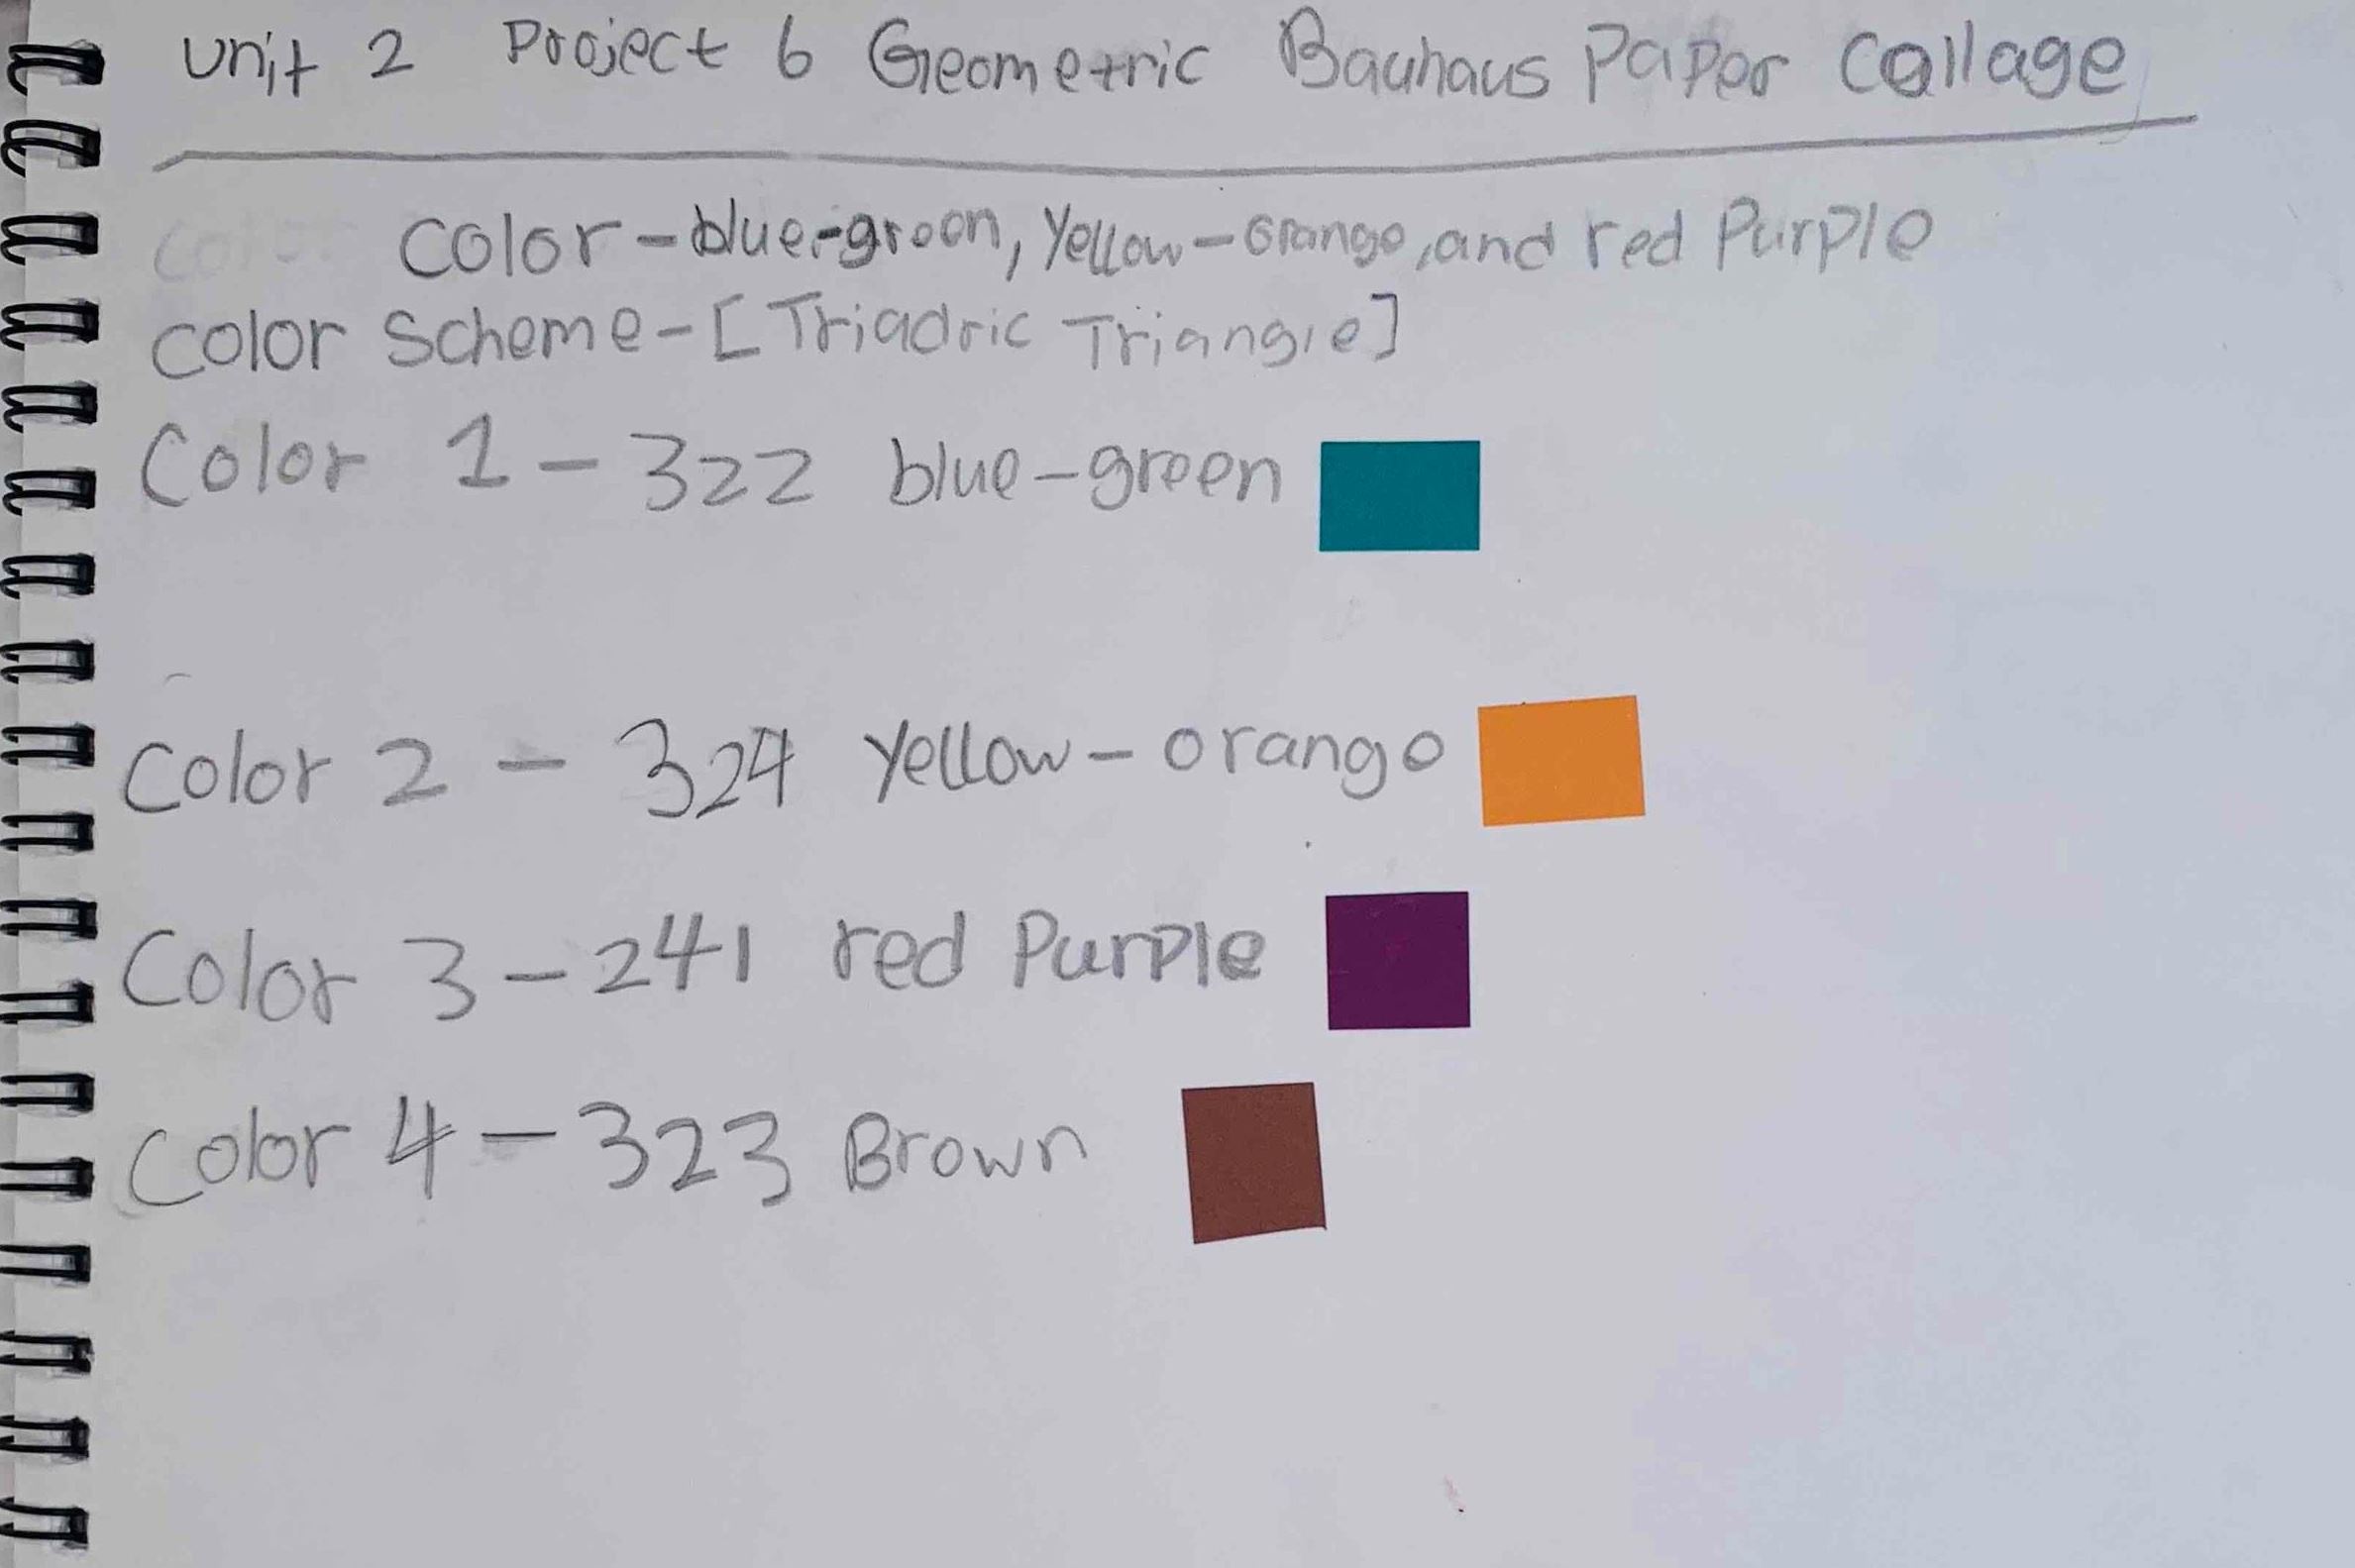 Unit 2 Project 6 Geometric Bauhaus Paper Collage
Color - blue-green, Yellow-orange, and red Purple
Color Scheme - [Triadric Triangle]
Color 1 - 322 blue-green
Color 2 - 324 Yellow-orange
Color 3 - 241 red Purple
Color 4 - 323 Brown